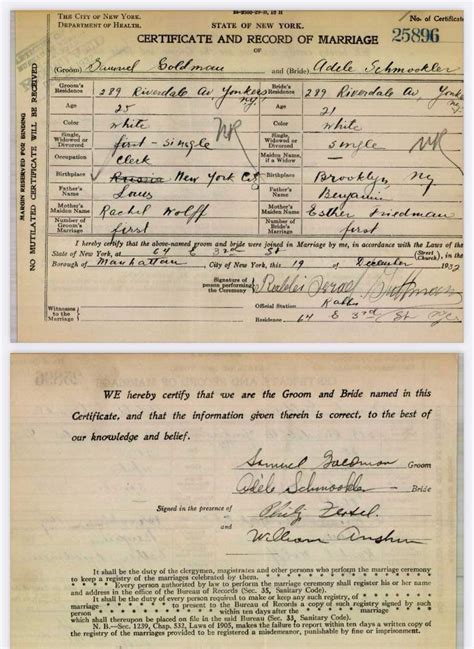 THE CITY OF NEW YORK.
DEPARTMENT OF HEALTH.
STATE OF NEW YORK.
No. of Certificate
CERTIFICATE AND RECORD OF MARRIAGE
25896
OF
(Groom) Samuel Goldman and (Bride) Adele Schmookler
Groom's Residence 289 Riverdale Av Yonkers N.Y. Bride's Residence 289 Riverdale Av Yonkers
Age 25 Age 21
Color White Color White
Single, Widowed or Divorced first - single NR Single, Widowed or Divorced single NR
Occupation Clerk Maiden Name, if a Widow
Birthplace Russia New York City Birthplace Brooklyn, NY
Father's Name Louis Father's Name Benjamin
Mother's Maiden Name Rachel Wolff Mother's Maiden Name Esther Friedman
Number of Groom's Marriage first Number of Bride's Marriage first
I hereby certify that the above-named groom and bride were joined in Marriage by me, in accordance with the Laws of the
State of New York, at 64 E 3rd St (Street Church), in the
Borough of Manhattan, City of New York, this 19 of December 1932
Signature of person performing the Ceremony
Official Station Rabbi
Witnesses to the Marriage
Residence 64 E 3rd St NYC
MARGIN RESERVED FOR BINDING
NO MUTILATED CERTIFICATE WILL BE RECEIVED
WE hereby certify that we are the Groom and Bride named in this
Certificate, and that the information given therein is correct, to the best of
our knowledge and belief.
Samuel Goldman Groom
Adele Schmookler Bride
Signed in the presence of Philip
and William
It shall be the duty of the clergymen, magistrates and other persons who perform the marriage ceremony
to keep a registry of the marriages celebrated by them.
Every person authorized by law to perform the marriage ceremony shall register his or her name
and address in the office of the Bureau of Records (Sec. 33, Sanitary Code).
It shall be the duty of every person required to make or keep any such registry, of
marriage to present to the Bureau of Records a copy of such registry signed by such
person within ten days after
marriage
which shall thereupon be placed on file in the said Bureau (Sec. 33, Sanitary Code).
N. B.—Sec. 1239, Chap. 532, Laws of 1905, makes the failure to report within ten days a written copy of
the registry of marriages provided to be registered a misdemeanor, punishable by fine and imprisonment.